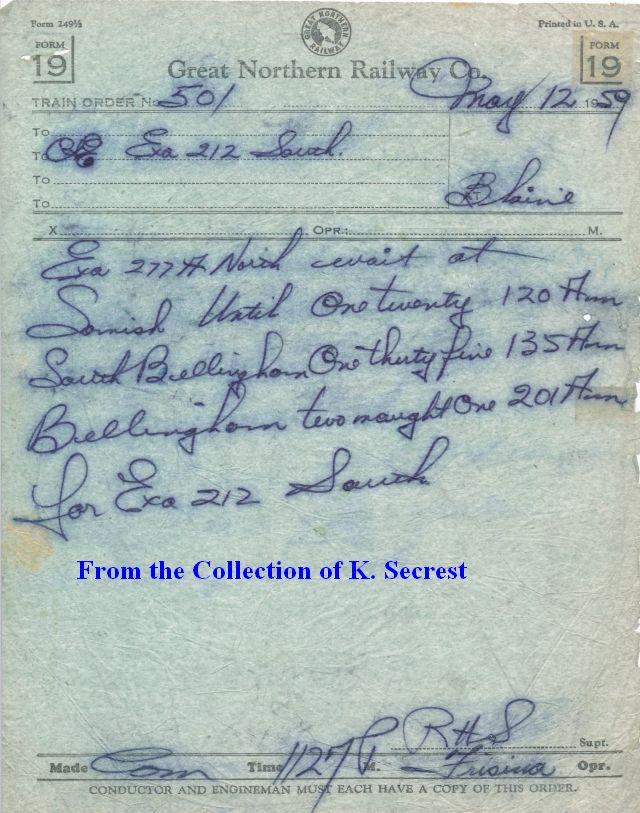 Form 249½
GREAT NORTHERN RAILWAY
Printed in U. S. A.
FORM 19
FORM 19
Great Northern Railway Co.
TRAIN ORDER No. 501 May 12 1959
To
To C&E Exa 212 South.
To
To At Blaine
X OPR.: M.
Exa 277A North wait at
Samish Until One twenty 120 Am
South Bellingham One thirty five 135 Am
Bellingham two naught One 201 Am
for Exa 212 South
From the Collection of K. Secrest
RHS Supt.
Made Com Time 1127 P M. Frisina Opr.
CONDUCTOR AND ENGINEMAN MUST EACH HAVE A COPY OF THIS ORDER.